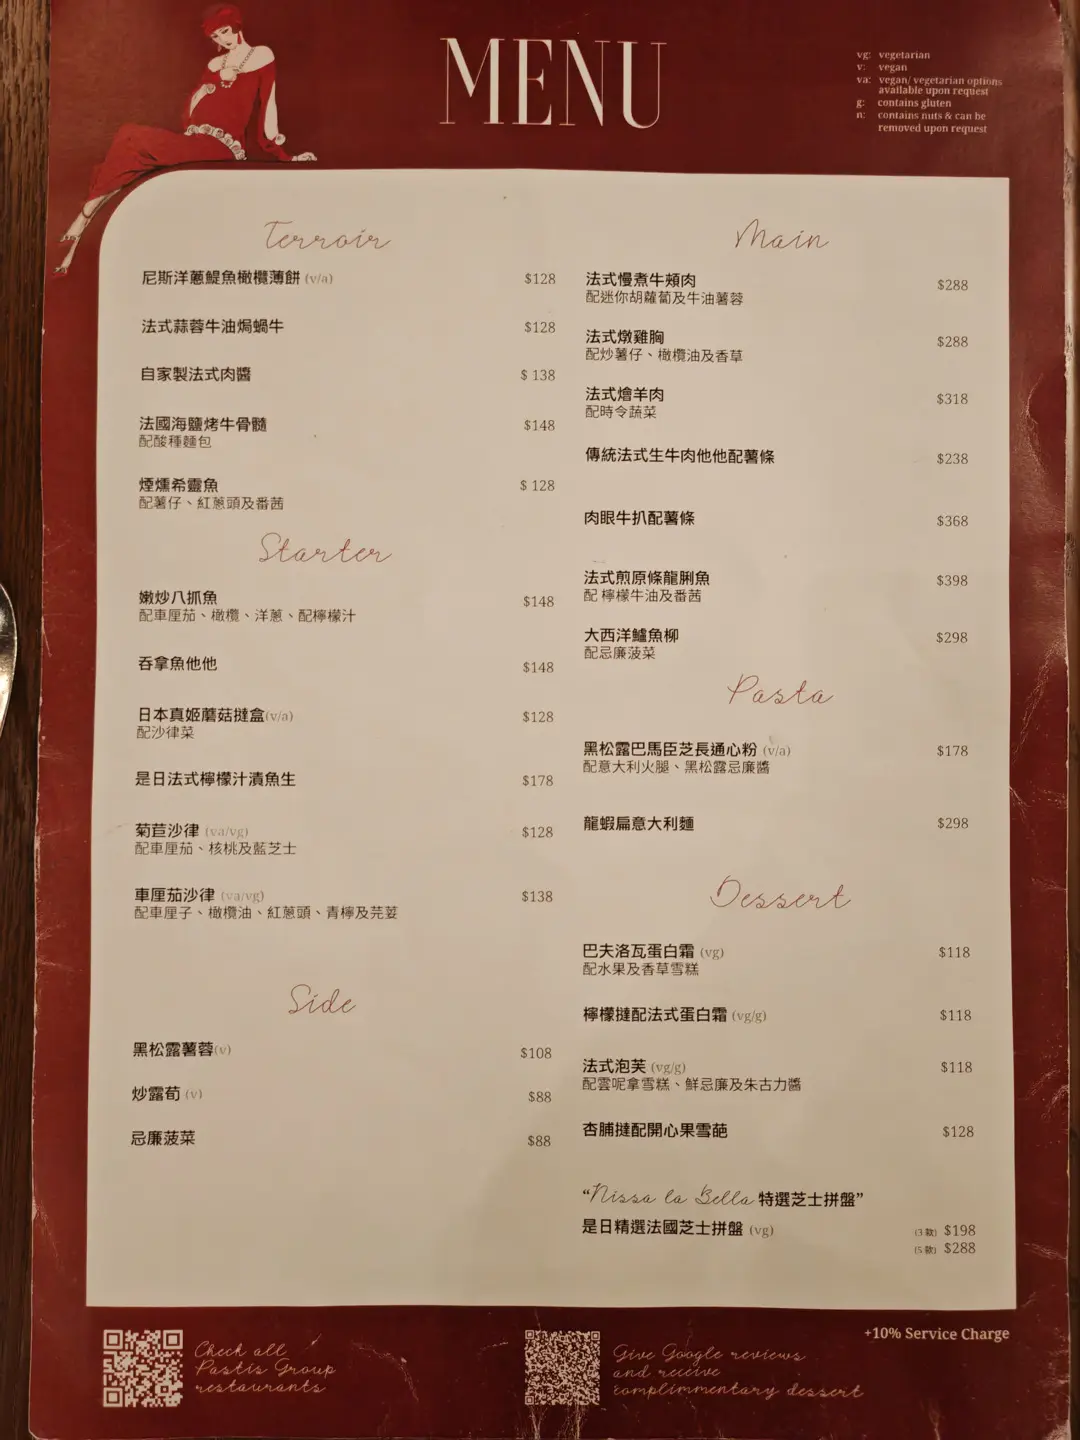 MENU
vg: vegetarian
v: vegan
va: vegan/ vegetarian options
available upon request
g: contains gluten
n: contains nuts & can be
removed upon request
Terroir
尼斯洋蔥鯷魚橄欖薄餅 (v/a) $128
法式蒜蓉牛油焗蝸牛 $128
自家製法式肉醬 $ 138
法國海鹽烤牛骨髓 $148
配酸種麵包
煙燻希靈魚 $ 128
配薯仔、紅蔥頭及番茜
Starter
嫩炒八抓魚 $148
配車厘茄、橄欖、洋蔥、配檸檬汁
吞拿魚他他 $148
日本真姬蘑菇撻盒(v/a) $128
配沙律菜
是日法式檸檬汁漬魚生 $178
菊苣沙律 (va/vg) $128
配車厘茄、核桃及藍芝士
車厘茄沙律 (va/vg) $138
配車厘子、橄欖油、紅蔥頭、青檸及芫荽
Side
黑松露薯蓉(v) $108
炒露荀 (v) $88
忌廉菠菜 $88
Main
法式慢煮牛頰肉 $288
配迷你胡蘿蔔及牛油薯蓉
法式燉雞胸 $288
配炒薯仔、橄欖油及香草
法式燴羊肉 $318
配時令蔬菜
傳統法式生牛肉他他配薯條 $238
肉眼牛扒配薯條 $368
法式煎原條龍脷魚 $398
配 檸檬牛油及番茜
大西洋鱸魚柳 $298
配忌廉菠菜
Pasta
黑松露巴馬臣芝長通心粉 (v/a) $178
配意大利火腿、黑松露忌廉醬
龍蝦扁意大利麵 $298
Dessert
巴夫洛瓦蛋白霜 (vg) $118
配水果及香草雪糕
檸檬撻配法式蛋白霜 (vg/g) $118
法式泡芙 (vg/g) $118
配雲呢拿雪糕、鮮忌廉及朱古力醬
杏脯撻配開心果雪葩 $128
“Nissa la Bella 特選芝士拼盤”
是日精選法國芝士拼盤 (vg) (3 款) $198
(5 款) $288
+10% Service Charge
Check all
Pastis Group
restaurants
Give Google reviews
and receive
complimmentary dessert